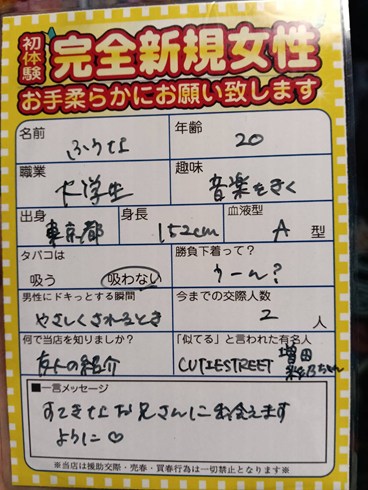 初体験 完全新規女性
お手柔らかにお願い致します
名前 年齢 20
職業 大学生 趣味 音楽をきく
出身 東京都 身長 152cm 血液型 A 型
タバコは 吸う 吸わない 勝負下着って? うーん?
男性にドキっとする瞬間 やさしくされるとき 今までの交際人数 2 人
何で当店を知りましたか? 友人の紹介 「似てる」と言われた有名人 CUTIESTREET 増田彩乃ちゃん
■一言メッセージ
すてきなお兄さんにお会えます
ように♡
※当店は援助交際・売春・買春行為は一切禁止となります※